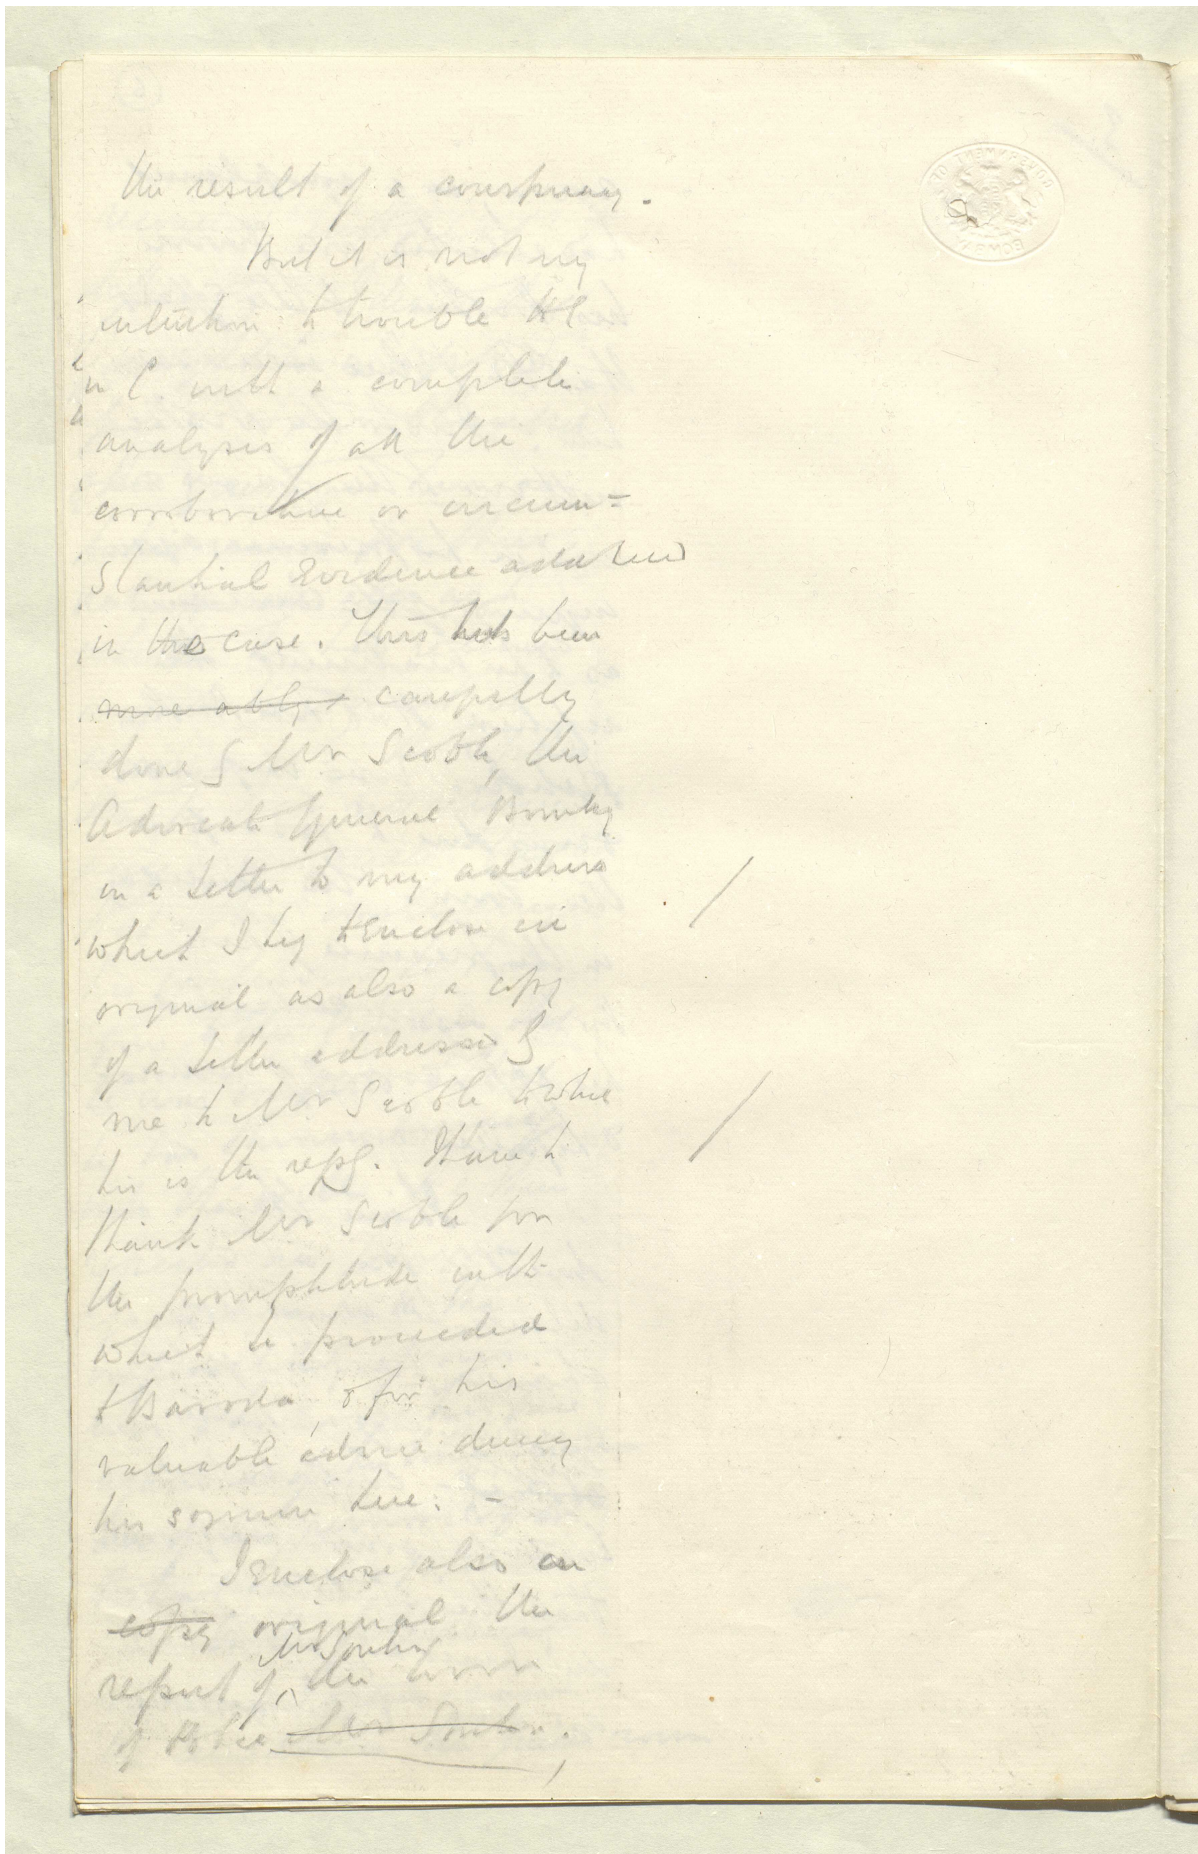 the result of a conspiracy.
But it is not my
intention to trouble HE
in C. with a complete
analysis of all the
corroborative or circum=
stantial Evidence adduced
in the case. This has been
more ably carefully
done by Mr Scoble, the
Advocate General Bombay
in a letter to my address
which I beg to Enclose in
original as also a copy
of a letter addressed by
me to Mr Scoble to which
his is the reply. I have to
thank Mr Scoble for
the promptitude with
which he proceeded
to Baroda, & for his
valuable advice during
his sojourn here. -
I Enclose also in
copy original the
Mr Souter
report of the Comr
of Police Mr Souter.
GOVERNMENT OF
BOMBAY